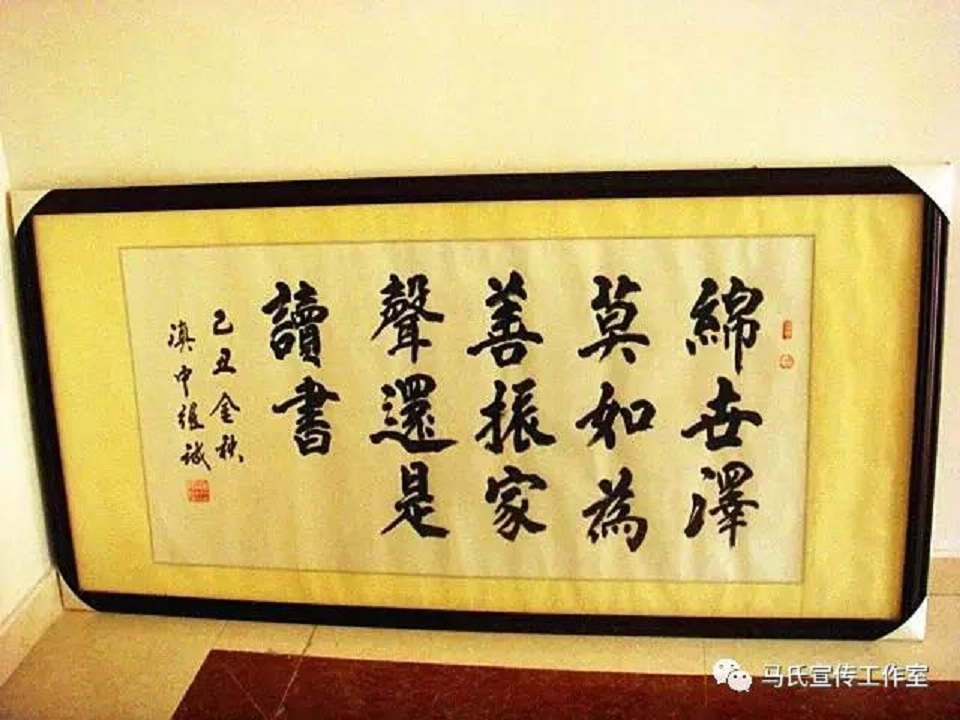 綿世澤
莫如為
善振家
聲還是
讀書
己丑金秋
滇中繼誠
马氏宣传工作室